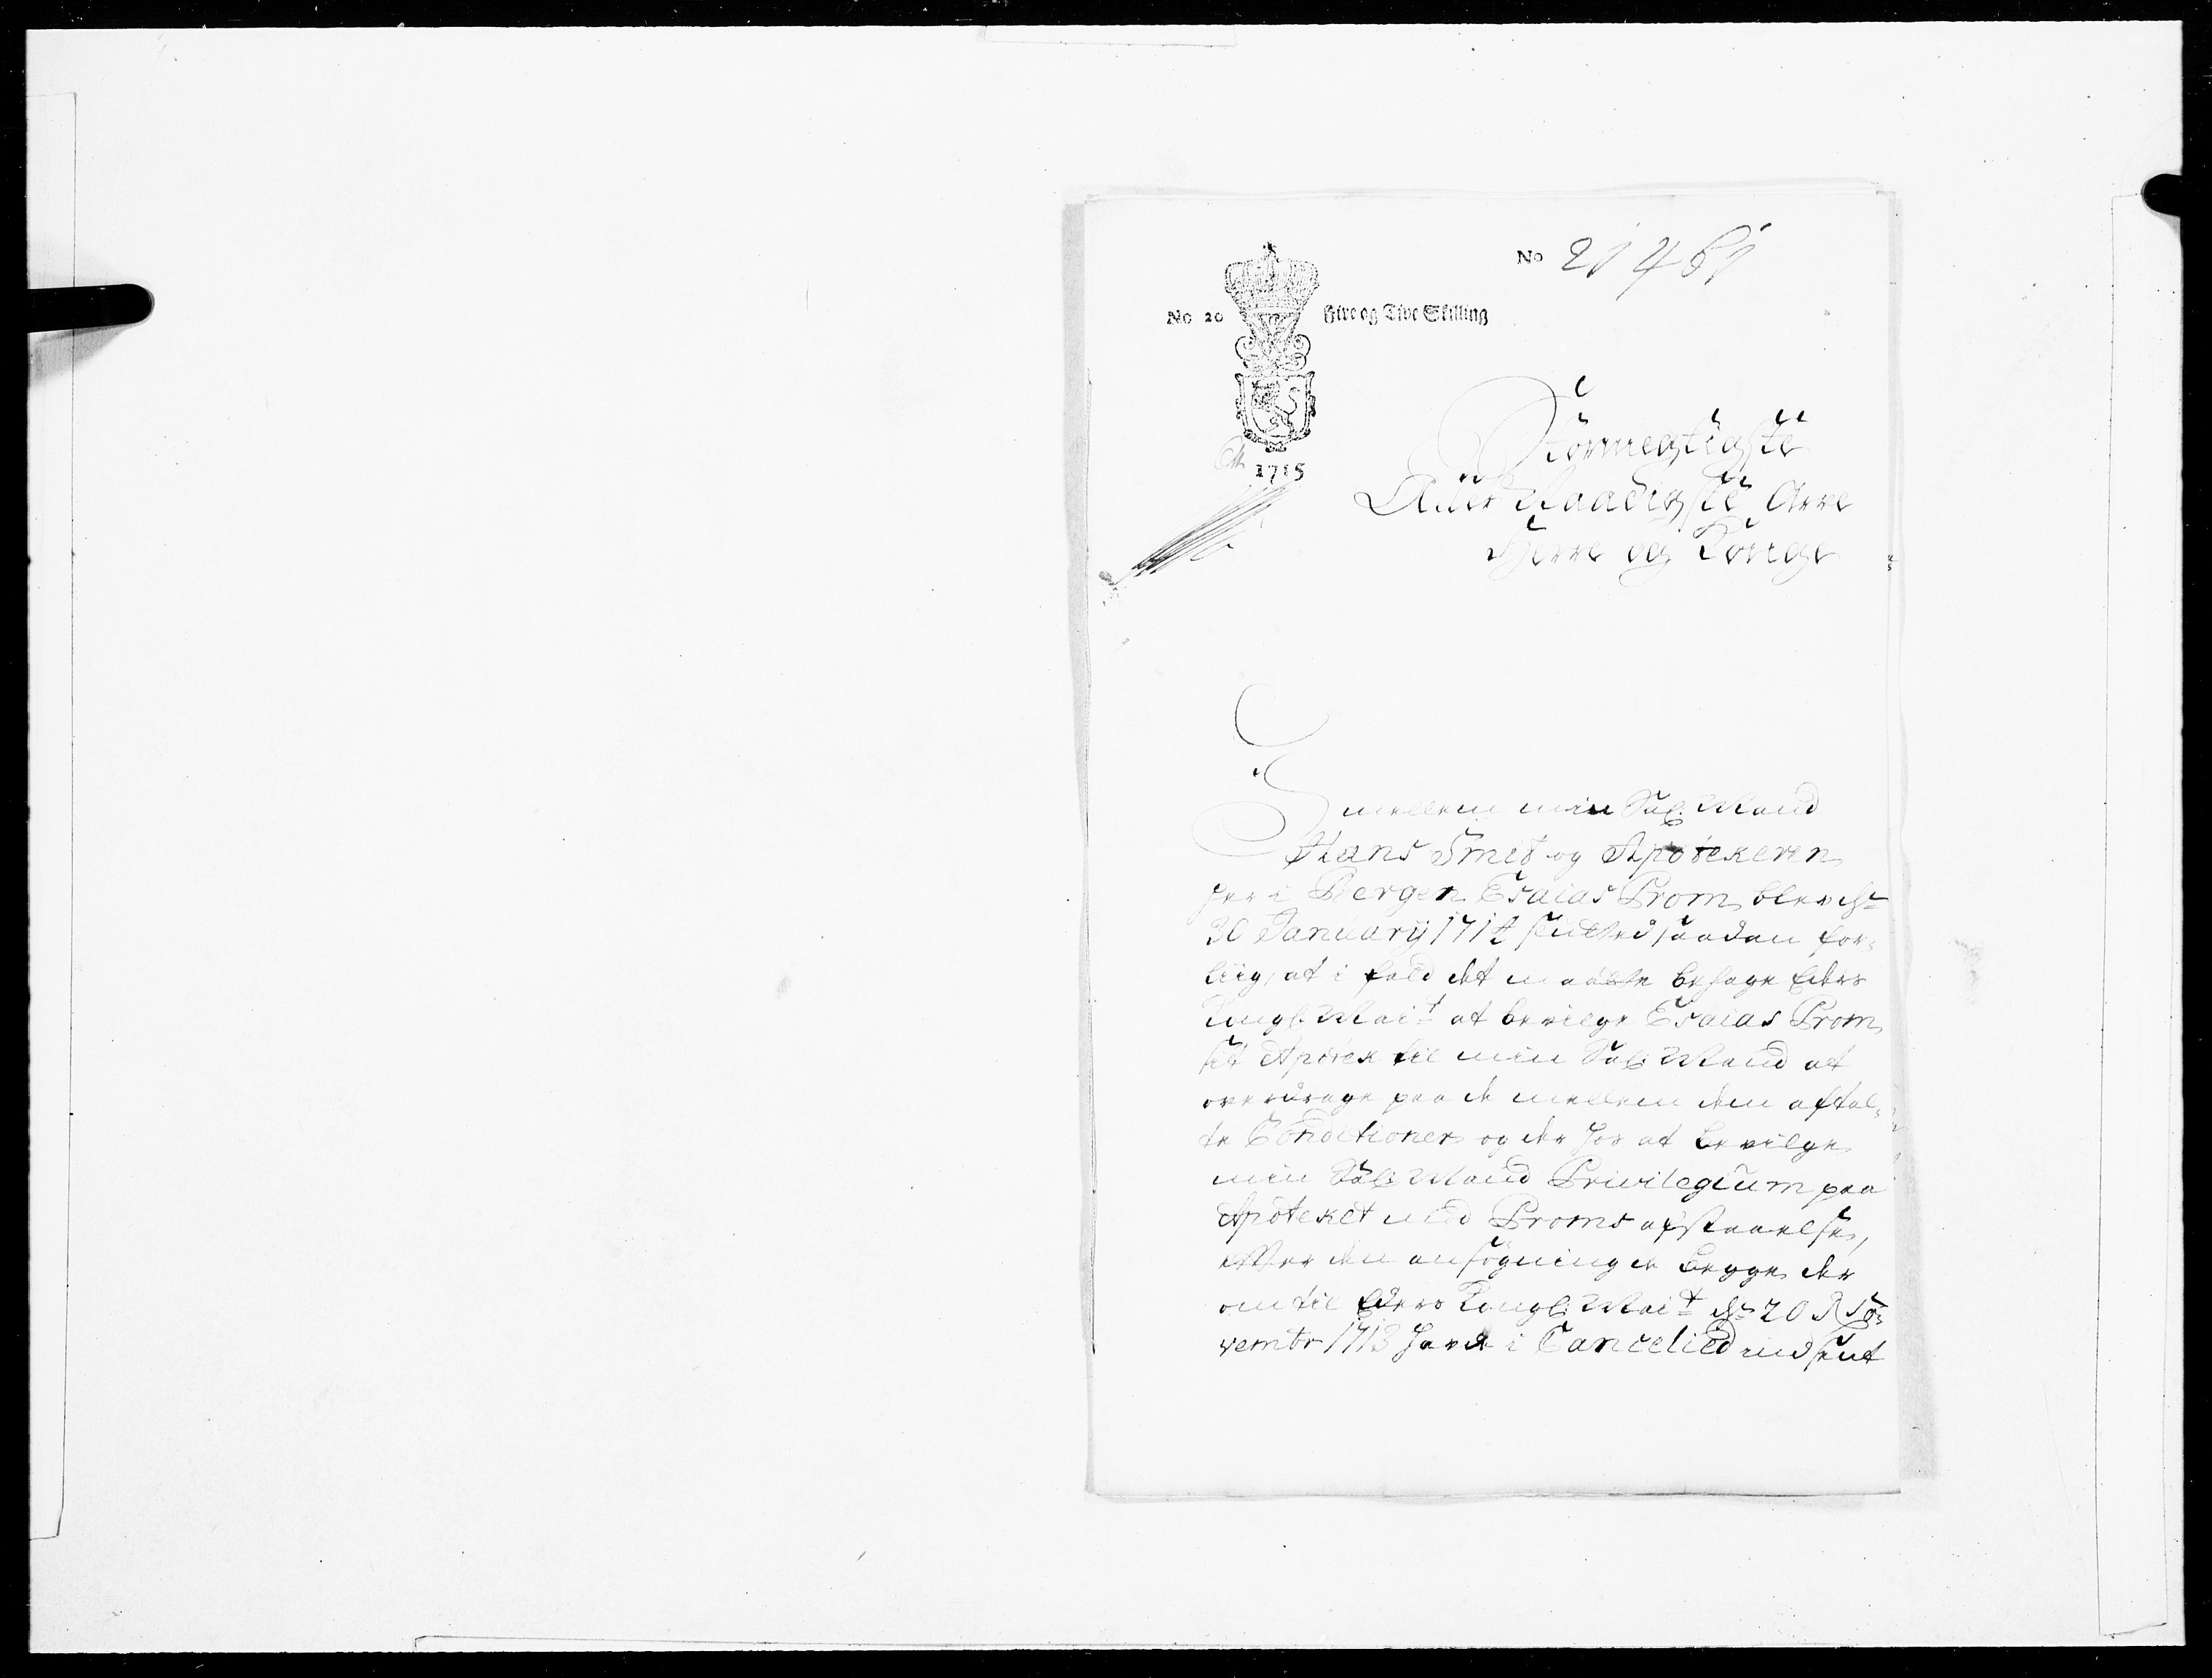 No 21461
No 20 Fire og Tive Skilling
1715
Stormegtigste
Aller Naadigste Arve
Herre og Konge
Imellem min Sal: Mand
Hans Smid og Apotekeren
her i Bergen Esaias Prom blev d:
30 January 1712 slutted saadan for-
liig, at i fald det maatte behage Eders
Kongl: Mai:t at bevilge Esaias Prom
sit Apotek til min Sal: Mand at
overdrage paa de mellem dem aftal-
te Conditioner og der hos at bevilge
min Sal: Mand Privilegium paa
Apoteket med Proms afstaaelse,
efter den ansøgning de begge der
om til Eders Kongl: Mai:t d: 20 No-
vembr 1713 hafde i Cancelied indsent